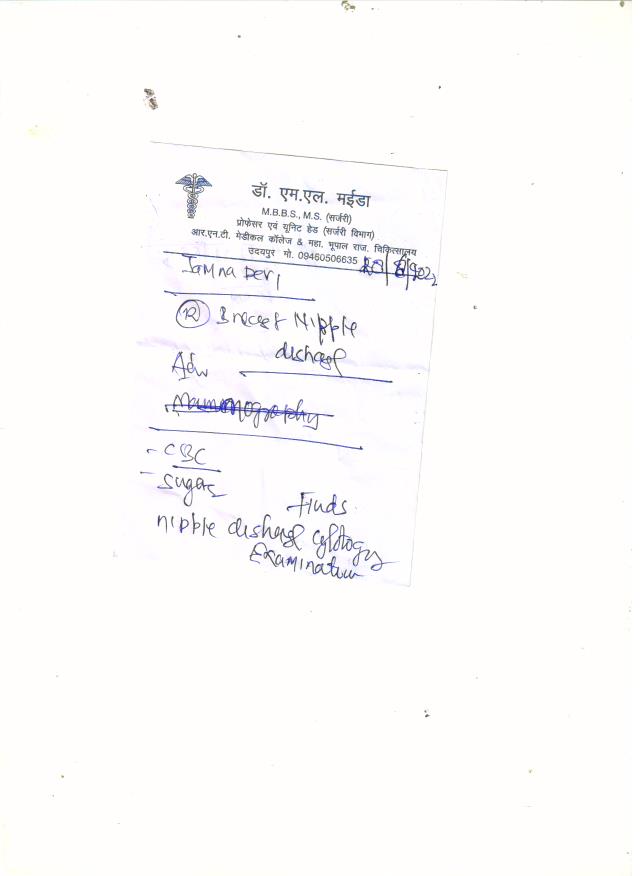 डॉ. एम.एल. मईडा
M.B.B.S., M.S. (सर्जरी)
प्रोफेसर एवं यूनिट हेड (सर्जरी विभाग)
आर.एन.टी. मेडीकल कॉलेज & महा. भूपाल राज. चिकित्सालय
उदयपुर मो. 09460506635
Jamna Devi
Breast Nipple
dishasg
Adv
Mammography
- CBC
- Sugar
Fluds
nipple dishasg cytology
Examination